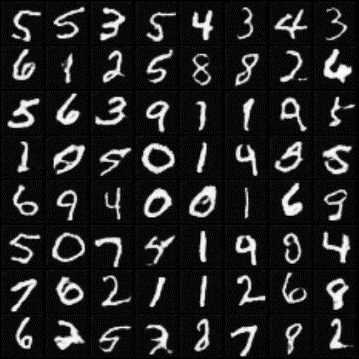 5 5 3 5 4 3 4 3
6 1 2 5 8 8 2 6
5 6 3 9 1 1 9 5
1 5 0 1 4 8 5
6 9 4 0 0 1 6 9
5 0 7 4 1 9 8 4
7 6 2 1 1 2 6 8
6 2 5 8 7 9 2